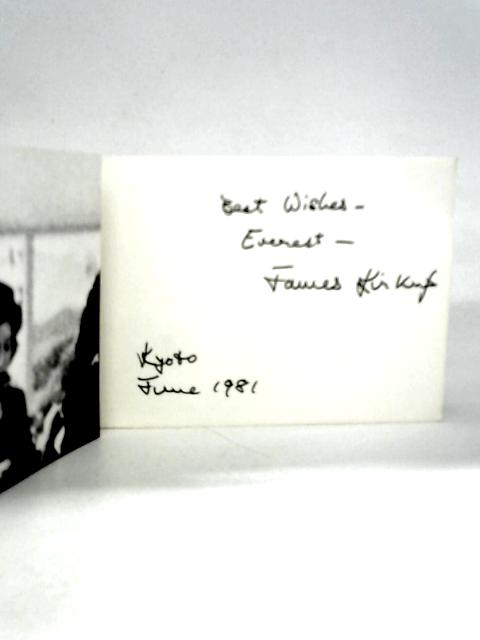 Best Wishes –
Everest –
James Kirkup
Kyoto
June 1981